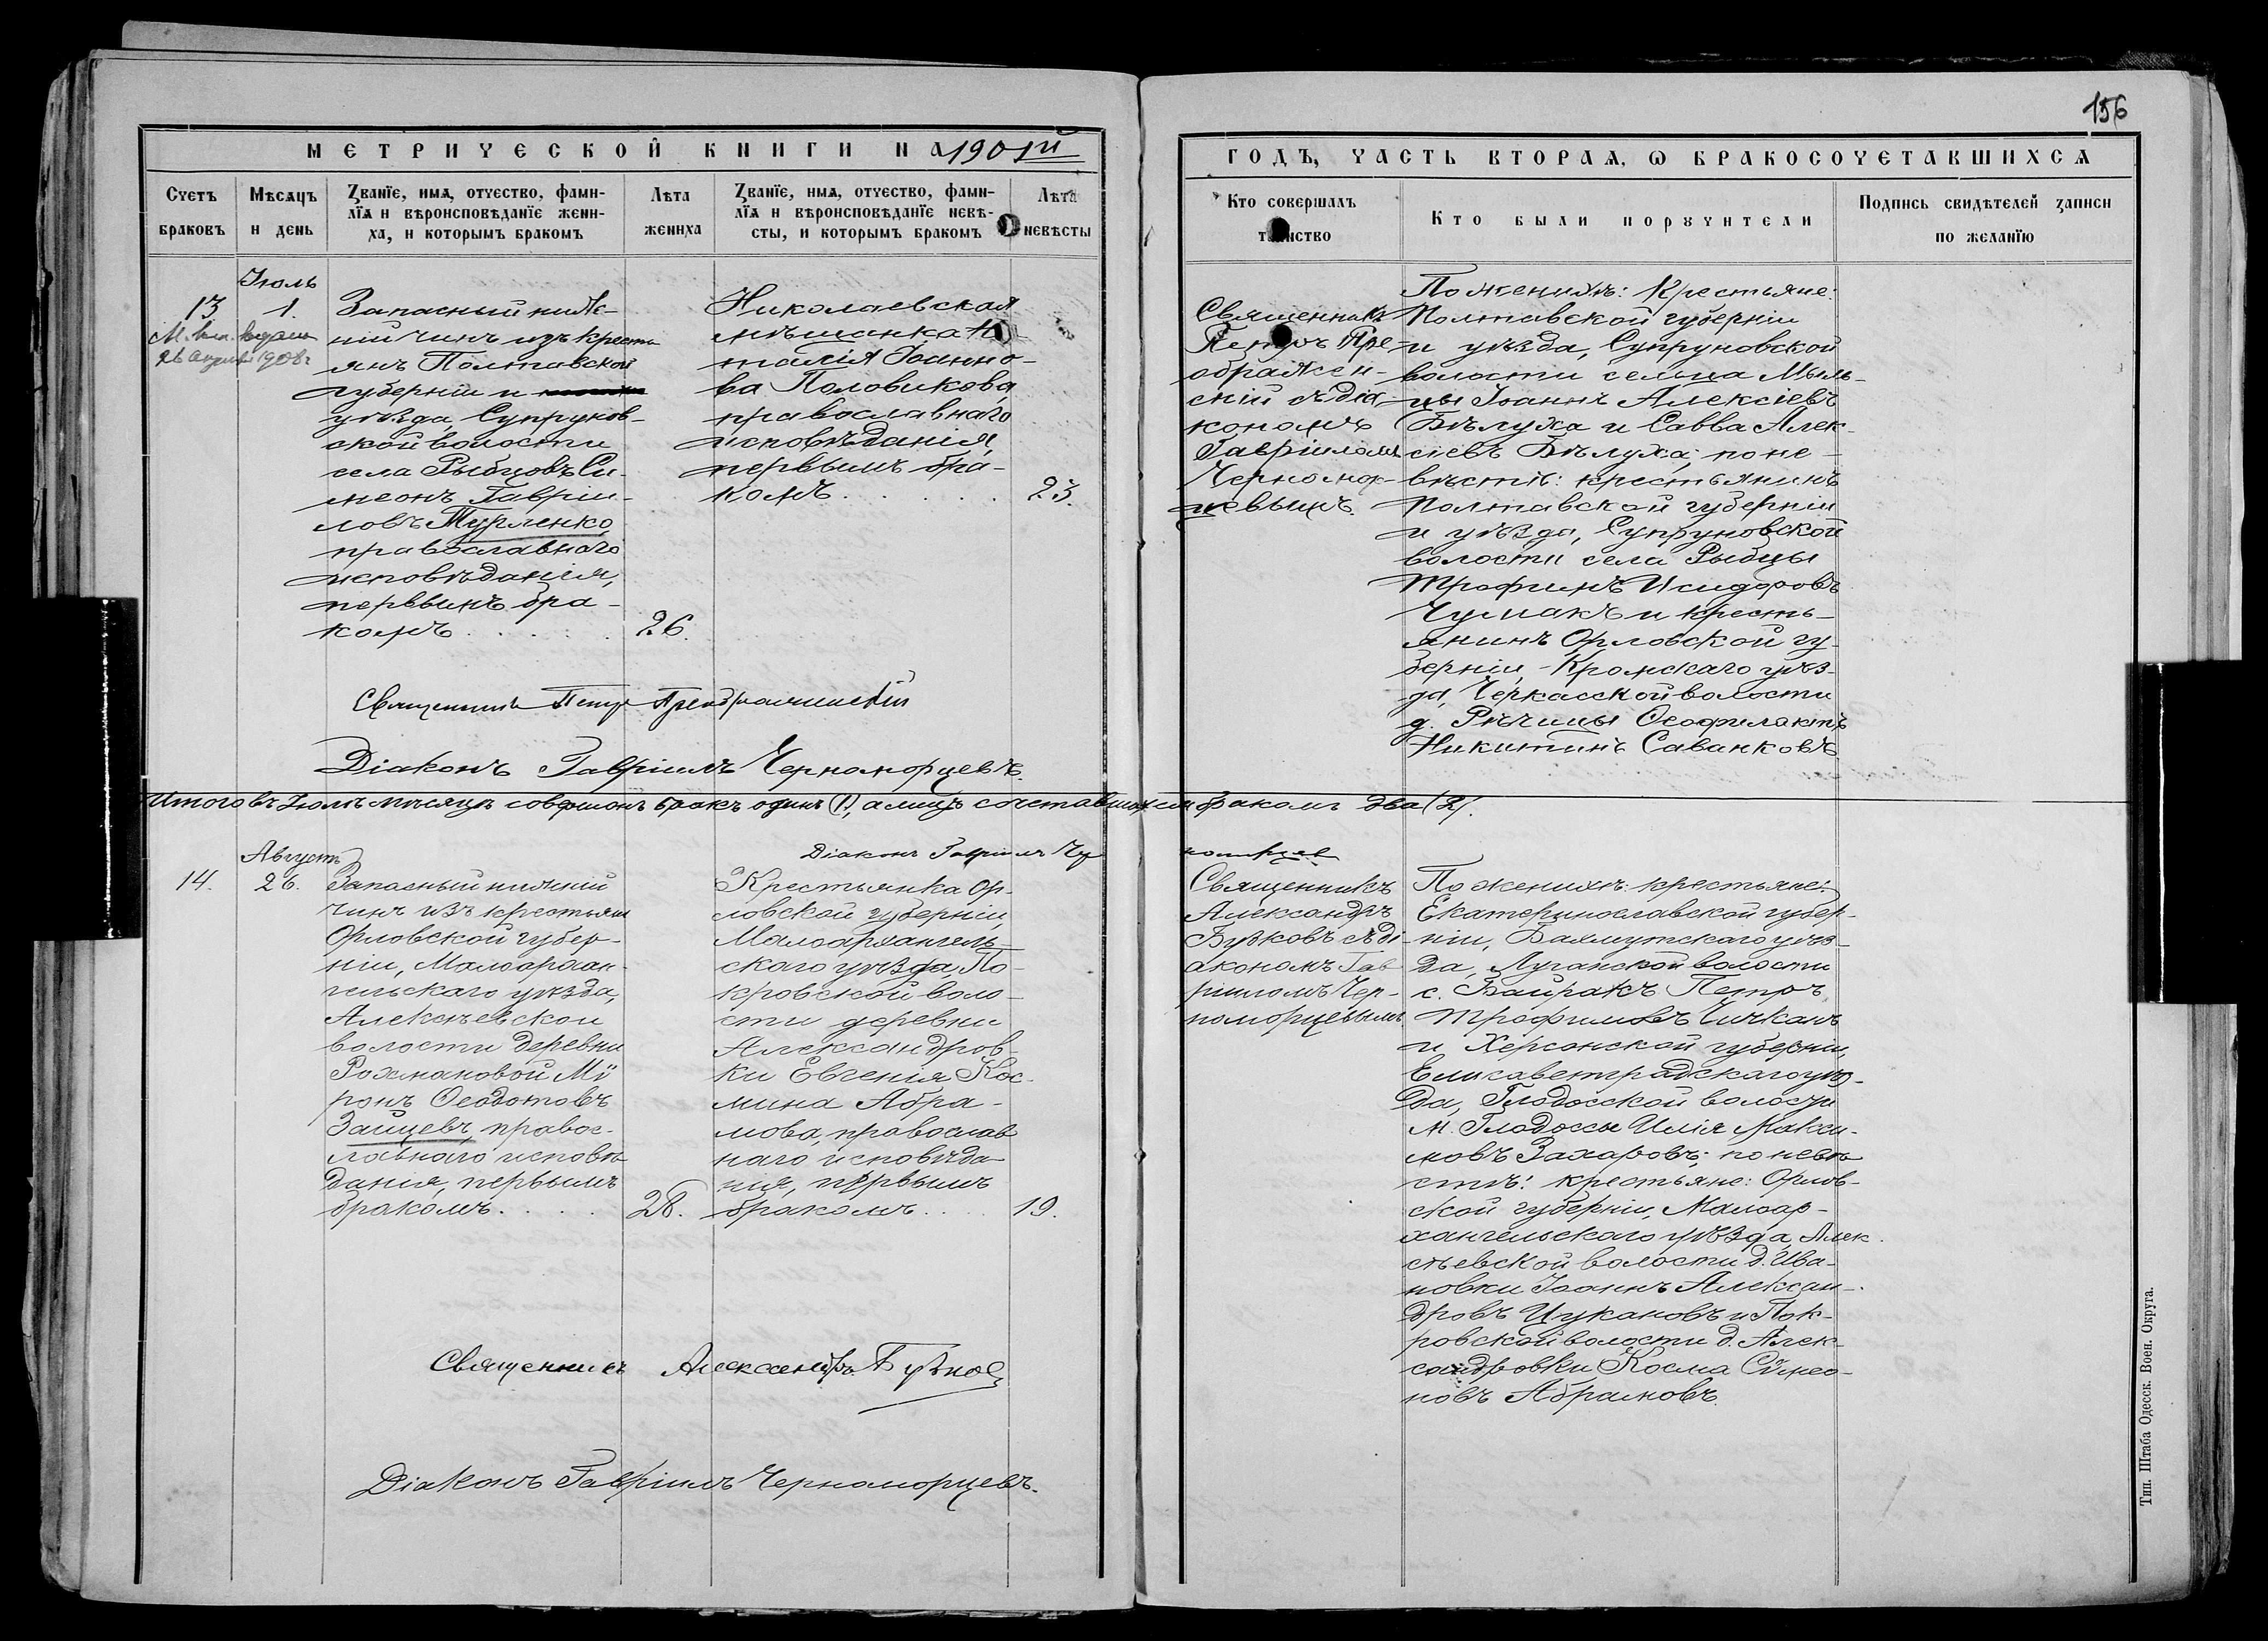 156
МЕТРИЧЕСКОЙ КНИГИ НА 1901й
ГОДЪ, ЧАСТЬ ВТОРАЯ, Ѡ БРАКОСОЧЕТАВШИХСЯ
Счетъ
браковъ
Мѣсяцъ
и день
Званїе, имя, отчество, фами-
лїя и вѣроисповѣданїе жени-
ха, и которымъ бракомъ
Лѣта
жениха
Званїе, имя, отчество, фами-
лїя и вѣроисповѣданїе невѣ-
сты, и которымъ бракомъ
Лѣта
невѣсты
Кто совершалъ
таинство
Кто были порꙋчители
Подпись свидѣтелей записи
по желанїю
Іюль
13
1.
Запасный ниж-
ній чинъ изъ кресть
янъ Полтавской
губерніи и
уѣзда, Супрунов-
ской волости
села Рыбцовъ Си-
меонъ Гавріи-
ловъ Турленко
православнаго
исповѣданія,
первымъ бра-
комъ . . . . .
26.
Николаевская
мѣщанка На
талія Іоанно-
ва Половикова,
православнаго
исповѣданія,
первымъ бра-
комъ . . . . . .
23.
Священникъ
Петръ Пре-
ображен-
скій съ діа-
кономъ
Гавріиломъ
Черномор-
цевымъ.
По женихѣ: Крестьяне:
Полтавской губерніи
и уѣзда, Супруновской
волости сельца Мыль-
цы Іоаннъ Алексіевъ
Бѣлуха и Савва Алек-
сіевъ Бѣлуха; по не-
вѣстѣ: крестьянинъ
Полтавской губерніи
и уѣзда, Супруновской
волости села Рыбцы
Трофимъ Исидоровъ
Чумакъ и кресть-
янинъ Орловской гу-
берніи, Кромскаго уѣз-
да, Черкасской волости
д. Рѣчицы Ѳеофилактъ
Никитинъ Саванковъ.
Священникъ Петръ Преображенскій
Діаконъ Гавріилъ Черноморцевъ.
Итого въ Іюлѣ мѣсяцѣ совершонъ бракъ одинъ (1), а лицъ сочетавшихся бракомъ два (2).
Діаконъ Гавріилъ Чер
номорцев
Августъ
14.
26.
Запасный нижній
чинъ изъ крестьянъ
Орловской губер-
ніи, Малоархан-
гельскаго уѣзда,
Алексѣевской
волости деревни
Рохмановой Мѵ
ронъ Ѳеодотовъ
Зайцевъ, правос-
лавнаго исповѣ
данія, первымъ
бракомъ. . . . .
28.
Крестьянка Ор-
ловской губерніи,
Малоархангель-
скаго уѣзда, По-
кровской воло-
сти деревни
Александров-
ки Евгенія Кос-
мина Абра-
мова, православ
наго исповѣда
нія, первымъ
бракомъ . . . .
19.
Священникъ
Александръ
съ ді-
акономъ Гав
ріиломъ Чер-
номорцевымъ.
По женихѣ: крестьяне:
Екатеринославской губер-
ніи, Бахмутскаго уѣз-
да, Луганской волости
с. Байракъ Петръ
Трофимовъ Чичканъ
и Херсонской губерніи,
Елисаветградскаго уѣз-
да, Глодосской волости
м. Глодоссы Илія Макси-
мовъ Захаровъ; по невѣ
стѣ: крестьяне: Орлов-
ской губерніи, Малоар-
хангельскаго уѣзда, Алек-
сѣевской волости д. Ива-
новки Іоаннъ Алексан-
дровъ Цукановъ и Пок-
ровской волости д. Алек-
сандровки Косма Сѵмео-
новъ Абрамовъ.
Священникъ Александръ
Діаконъ Гавріилъ Черноморцевъ.
Тип. Штаба Одесск. Воен. Округа.